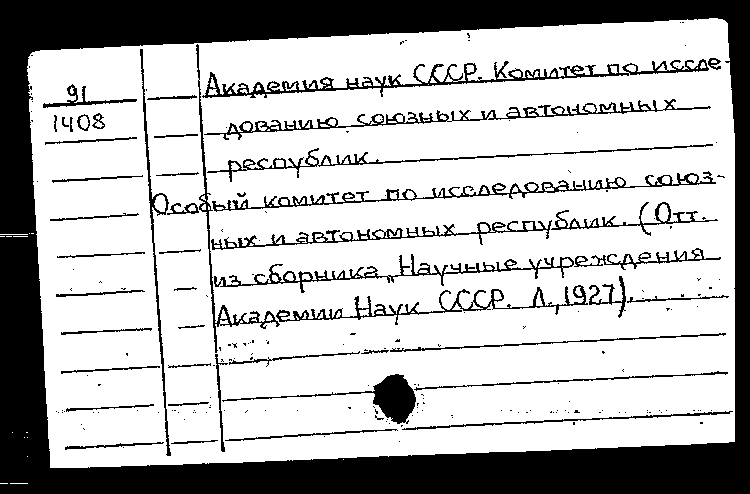 91
1408
Академия наук СССР. Комитет по иссле-
дованию союзных и автономных
республик.
Особый комитет по исследованию союз-
ных и автономных республик. (Отт.
из сборника „Научные учреждения
Академии Наук СССР. Л., 1927).